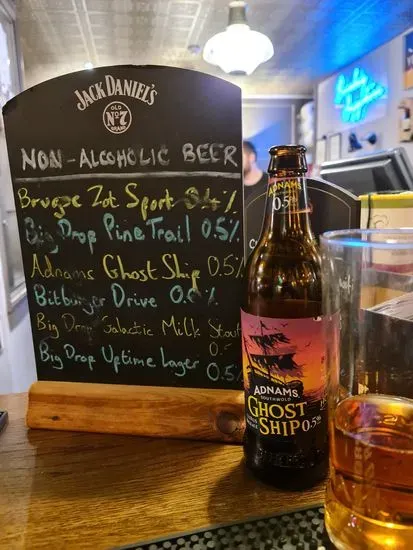 JACK DANIEL'S
OLD
No. 7
BRAND
NON-ALCOHOLIC BEER
Brugge Zot Sport 0.4%
Big Drop Pine Trail 0.5%
Adnams Ghost Ship 0.5%
Bitburger Drive 0.0%
Big Drop Galactic Milk Stout
0.5
Big Drop Uptime Lager 0.5%
ADNAMS
0.5%
ADNAMS
SOUTHWOLD
GHOST
SHIP 0.5%